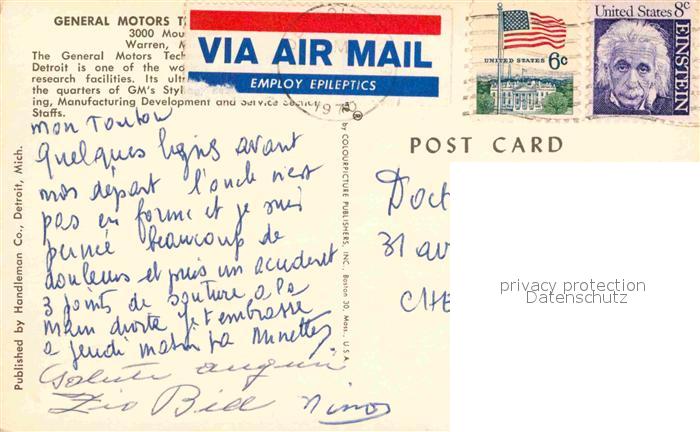 GENERAL MOTORS T
3000 Mou
Warren, M
The General Motors Tech
Detroit is one of the wo
research facilities. Its ult
the quarters of GM's Styli
ing, Manufacturing Development and Service Section
Staffs.
VIA AIR MAIL
EMPLOY EPILEPTICS
1970
UNITED STATES
6c
United States 8c
EINSTEIN
POST CARD
Published by Handleman Co., Detroit, Mich.
by COLOURPICTURE PUBLISHERS, INC., Boston 30, Mass., U.S.A.
mon Tonton
Quelques lignes avant
mos départ l'oncle n'est
pas en forme et je suis
beaucoup de
douleurs et puis un accident
3 points de souture a la
main droite je t'embrasse
a jeudi matin ta Minette
Salute auguri
Zio Bill Ninos
Doct
31 av
CHE
privacy protection
Datenschutz